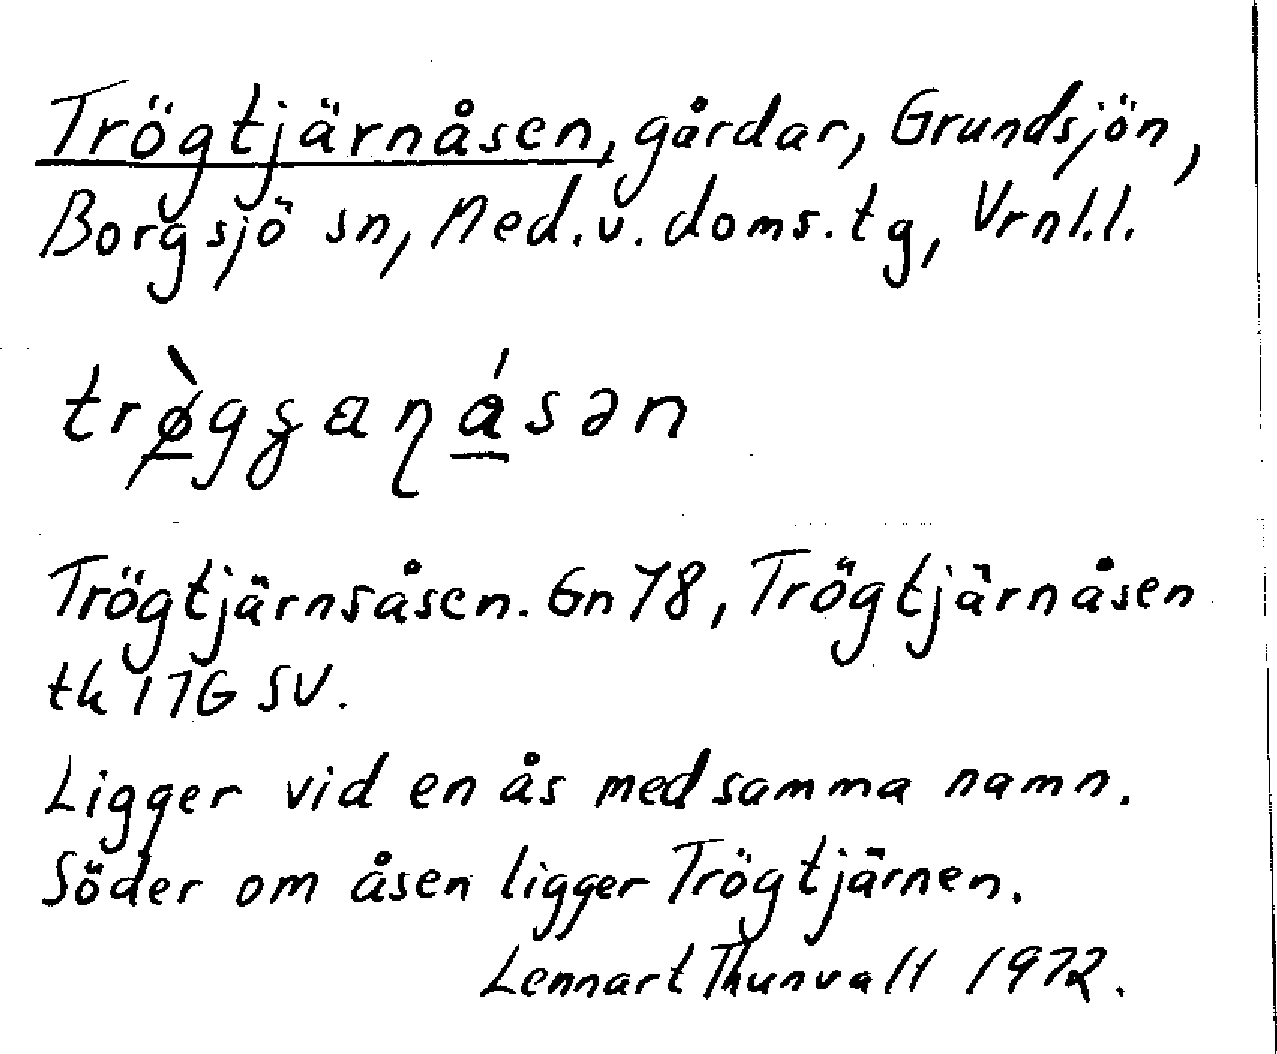 Trögtjärnåsen, gårdar, Grundsjön,
Borgsjö sn, Med.v.doms.tg, Vrnl.l.
trø̲̀gʂaɳá̲sən
Trögtjärnsåsen. Gn 78, Trögtjärnåsen
tk 17G SV.
Ligger vid en ås med samma namn.
Söder om åsen ligger Trögtjärnen.
Lennart Thunvall 1972.